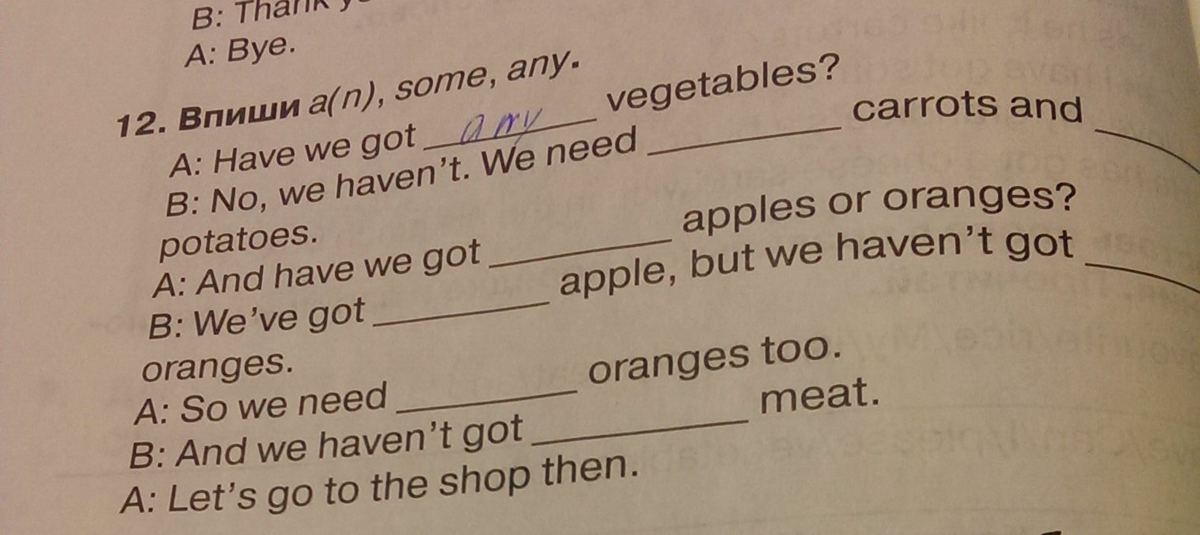 B: Thank y
A: Bye.
12. Впиши a(n), some, any.
A: Have we got any vegetables?
B: No, we haven't. We need ________ carrots and ________
potatoes.
A: And have we got ________ apples or oranges?
B: We've got ________ apple, but we haven't got ________
oranges.
A: So we need ________ oranges too.
B: And we haven't got ________ meat.
A: Let's go to the shop then.